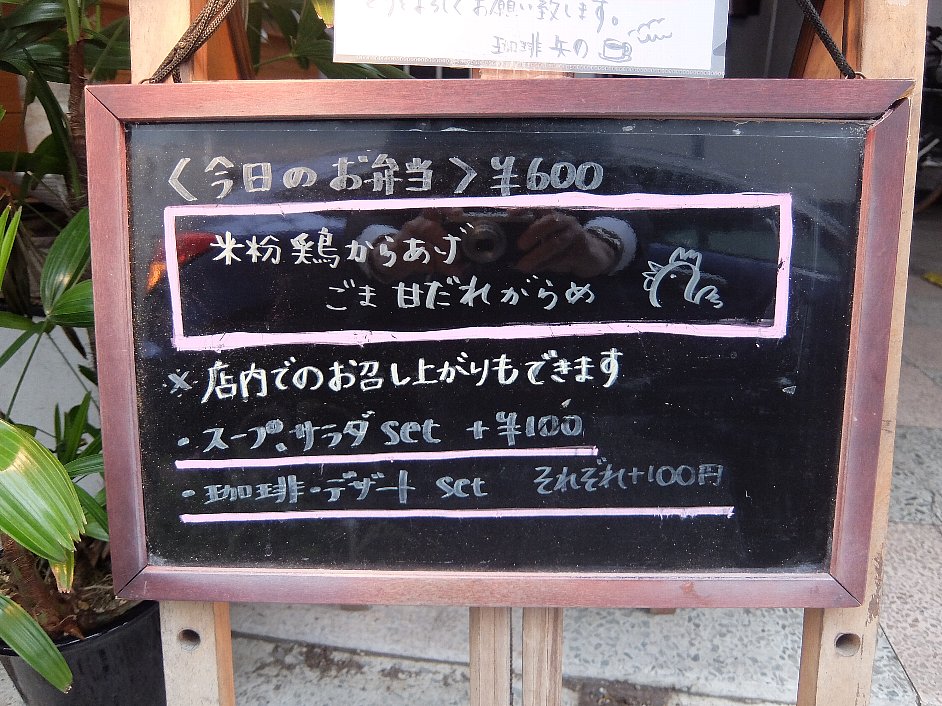 どうぞよろしくお願い致します。
〈今日のお弁当〉¥600
米粉鶏からあげ
ごま甘だれがらめ
※店内でのお召し上がりもできます
・スープ・サラダ set +¥100
・珈琲・デザート set それぞれ+100円